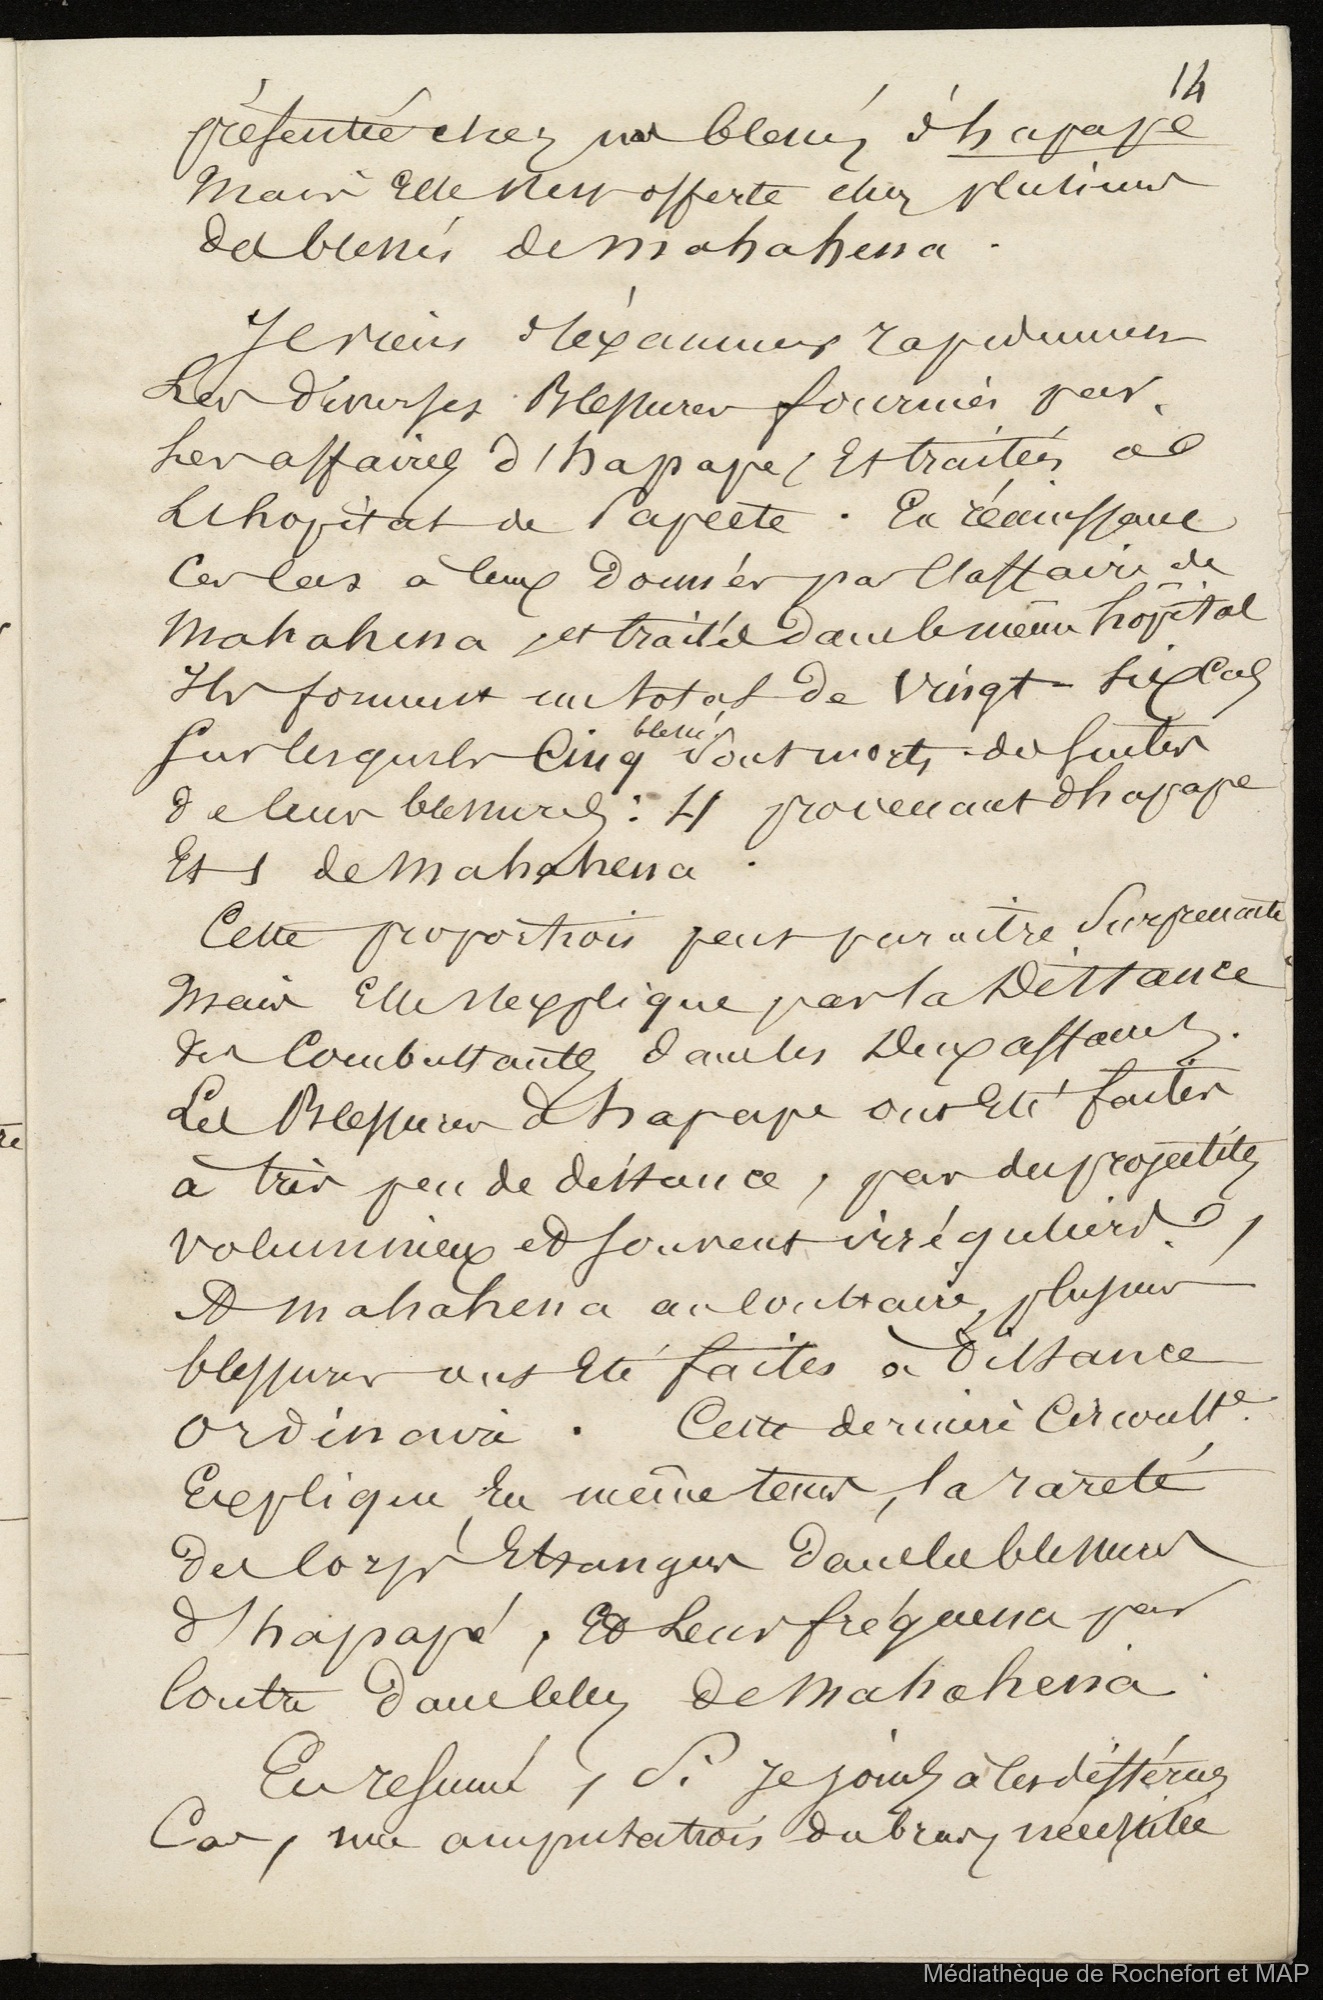 14
présentée chez nos blessés d'hapape
Mais Elle s'est offerte chez plusieurs
des blessés de Mahahena.
Je viens d'éxaminer rapidement
Les diverses Blessures fournies par
Les affaires d'hapape, Et traitées à
L'hopital de Papeete. En réunissant
Ces cas à ceux donnés par l'affaire de
Mahahena, et traités dans le même hôpital
Ils forment un total de Vingt-six Cas
Sur lesquels Cinq blessés sont morts des suites
de leurs blessures : 4 provenant d'hapape
Et 1 de Mahahena.
Cette proportion peut paraitre Surprenante
Mais Elle s'explique par la Distance
des Combattants dans les Deux affaires.
Les Blessures d'hapape ont Eté faites
à très peu de distance, par des projectiles
volumineux et souvent irréguliers,
A Mahahena au Contraire, plusieurs
blessures ont Eté faites à Distance
ordinaire. Cette dernière Circonst.ce
Explique En même tems, la rareté
Des Corps Etrangers Dans les blessures
d'hapapé, Et Leur fréquence par
Contre Dans Celles de Mahahena.
En resumé, Si Je joins à Ces différens
Cas, une amputation du bras, nécessitée
Médiathèque de Rochefort et MAP